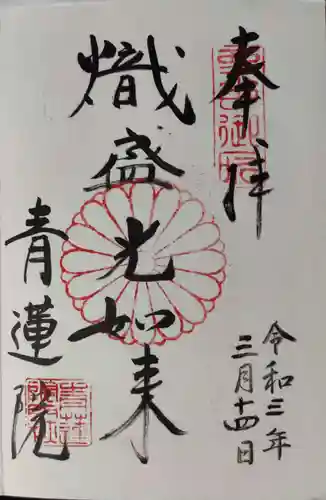 奉拝
熾盛光如来
青蓮院
令和三年
三月十四日